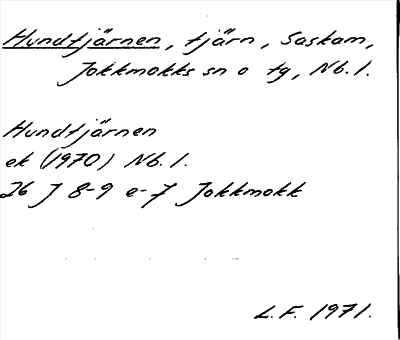 Hundtjärnen, tjärn, Saskam,
Jokkmokks sn o tg, Nb. l.
Hundtjärnen
ek (1970) Nb. l.
26 J 8-9 e-f Jokkmokk
L.F. 1971.